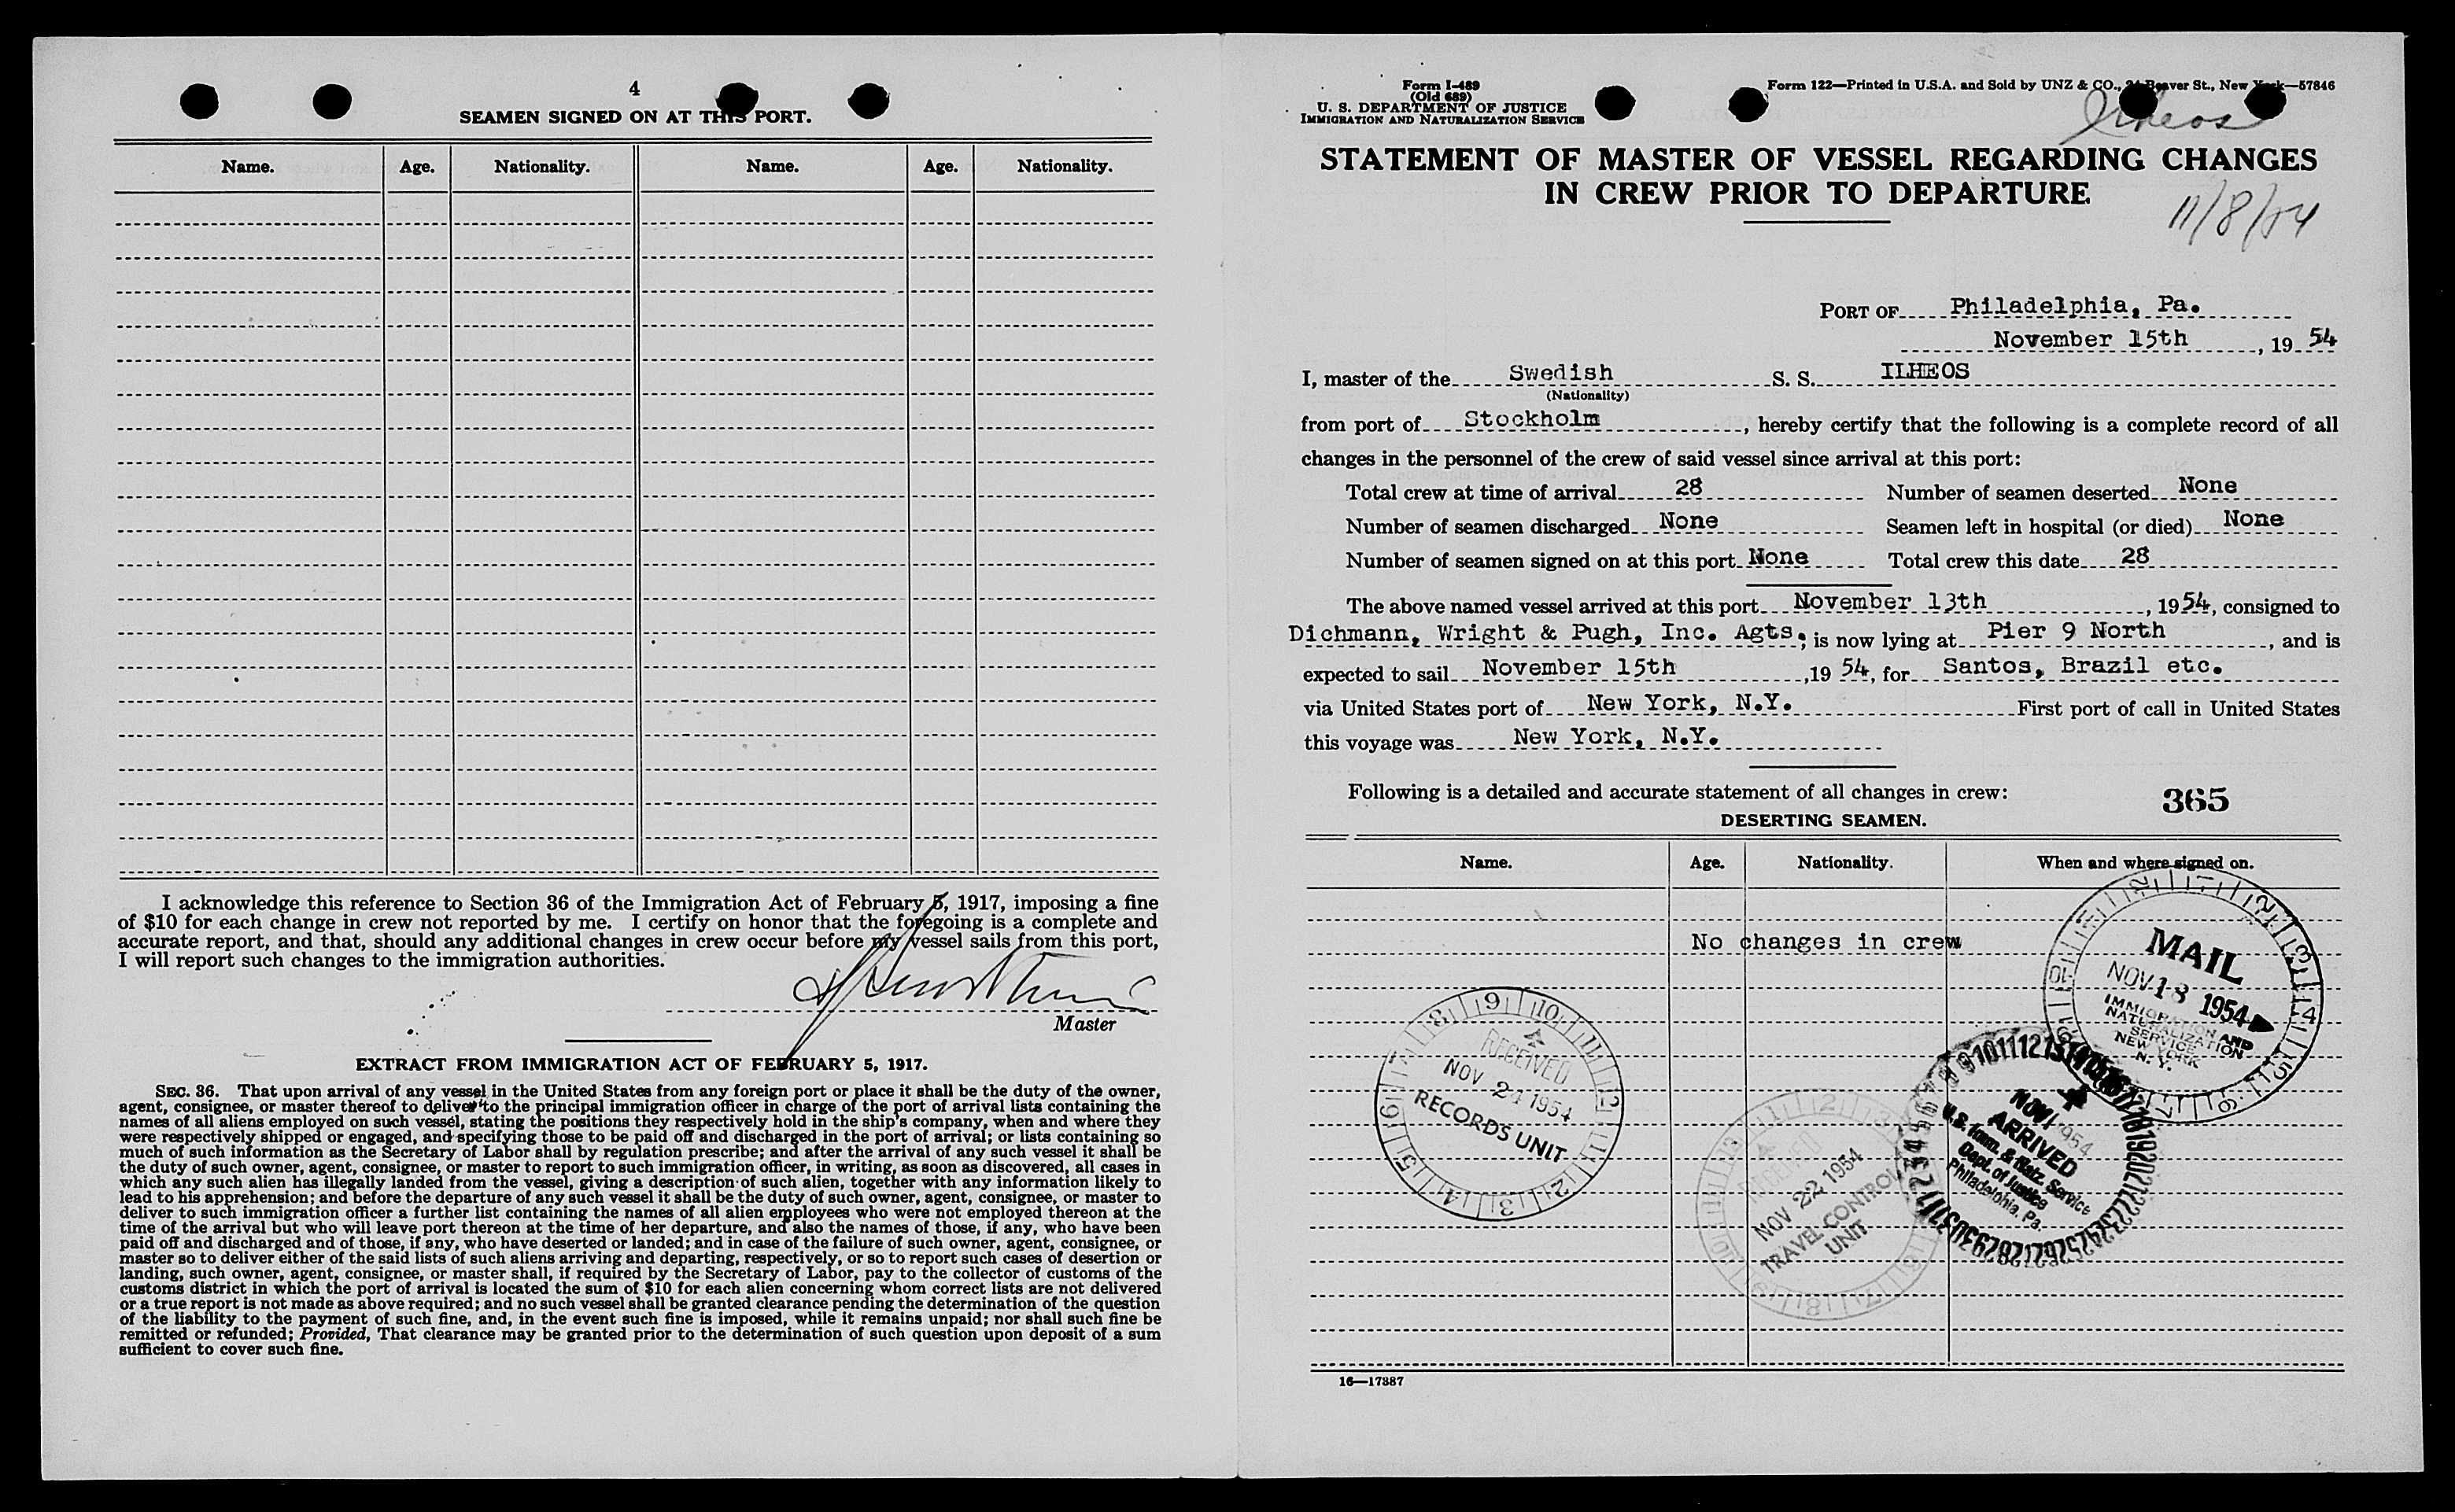 4
SEAMEN SIGNED ON AT THIS PORT.
Name. Age. Nationality. Name. Age. Nationality.
I acknowledge this reference to Section 36 of the Immigration Act of February 5, 1917, imposing a fine
of $10 for each change in crew not reported by me. I certify on honor that the foregoing is a complete and
accurate report, and that, should any additional changes in crew occur before my vessel sails from this port,
I will report such changes to the immigration authorities.
Master
EXTRACT FROM IMMIGRATION ACT OF FEBRUARY 5, 1917.
SEC. 36. That upon arrival of any vessel in the United States from any foreign port or place it shall be the duty of the owner,
agent, consignee, or master thereof to deliver to the principal immigration officer in charge of the port of arrival lists containing the
names of all aliens employed on such vessel, stating the positions they respectively hold in the ship's company, when and where they
were respectively shipped or engaged, and specifying those to be paid off and discharged in the port of arrival; or lists containing so
much of such information as the Secretary of Labor shall by regulation prescribe; and after the arrival of any such vessel it shall be
the duty of such owner, agent, consignee, or master to report to such immigration officer, in writing, as soon as discovered, all cases in
which any such alien has illegally landed from the vessel, giving a description of such alien, together with any information likely to
lead to his apprehension; and before the departure of any such vessel it shall be the duty of such owner, agent, consignee, or master to
deliver to such immigration officer a further list containing the names of all alien employees who were not employed thereon at the
time of the arrival but who will leave port thereon at the time of her departure, and also the names of those, if any, who have been
paid off and discharged and of those, if any, who have deserted or landed; and in case of the failure of such owner, agent, consignee, or
master so to deliver either of the said lists of such aliens arriving and departing, respectively, or so to report such cases of desertion or
landing, such owner, agent, consignee, or master shall, if required by the Secretary of Labor, pay to the collector of customs of the
customs district in which the port of arrival is located the sum of $10 for each alien concerning whom correct lists are not delivered
or a true report is not made as above required; and no such vessel shall be granted clearance pending the determination of the question
of the liability to the payment of such fine, and, in the event such fine is imposed, while it remains unpaid; nor shall such fine be
remitted or refunded; Provided, That clearance may be granted prior to the determination of such question upon deposit of a sum
sufficient to cover such fine.
Form I-489
(Old 689)
U. S. DEPARTMENT OF JUSTICE
IMMIGRATION AND NATURALIZATION SERVICE
Form 122—Printed in U.S.A. and Sold by UNZ & CO., 24 Beaver St., New York—57846
Ilheos
STATEMENT OF MASTER OF VESSEL REGARDING CHANGES
IN CREW PRIOR TO DEPARTURE
11/8/54
PORT OF Philadelphia, Pa.
November 15th, 19 54
I, master of the Swedish S. S. ILHEOS
(Nationality)
from port of Stockholm, hereby certify that the following is a complete record of all
changes in the personnel of the crew of said vessel since arrival at this port:
Total crew at time of arrival 28 Number of seamen deserted None
Number of seamen discharged None Seamen left in hospital (or died) None
Number of seamen signed on at this port None Total crew this date 28
The above named vessel arrived at this port November 13th, 1954, consigned to
Dichmann, Wright & Pugh, Inc. Agts.; is now lying at Pier 9 North, and is
expected to sail November 15th, 19 54, for Santos, Brazil etc.
via United States port of New York, N.Y. First port of call in United States
this voyage was New York, N.Y.
Following is a detailed and accurate statement of all changes in crew:
365
DESERTING SEAMEN.
Name. Age. Nationality. When and where signed on.
No changes in crew
MAIL
NOV 18 1954
IMMIGRATION AND
NATURALIZATION
SERVICE
NEW YORK
N. Y.
RECEIVED
NOV 24 1954
RECORDS UNIT
RECEIVED
NOV 22 1954
TRAVEL CONTROL
UNIT
NOV 1954
ARRIVED
U.S. Imm. & Natz. Service
Dept. of Justice
Philadelphia, Pa.
16—17387